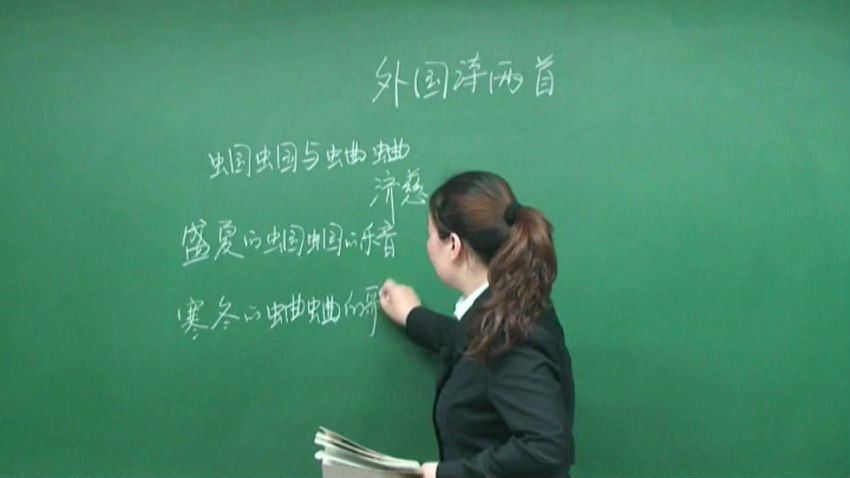 外国诗两首
蝈蝈与蛐蛐
济慈
盛夏的蝈蝈的乐音
寒冬的蛐蛐的哥